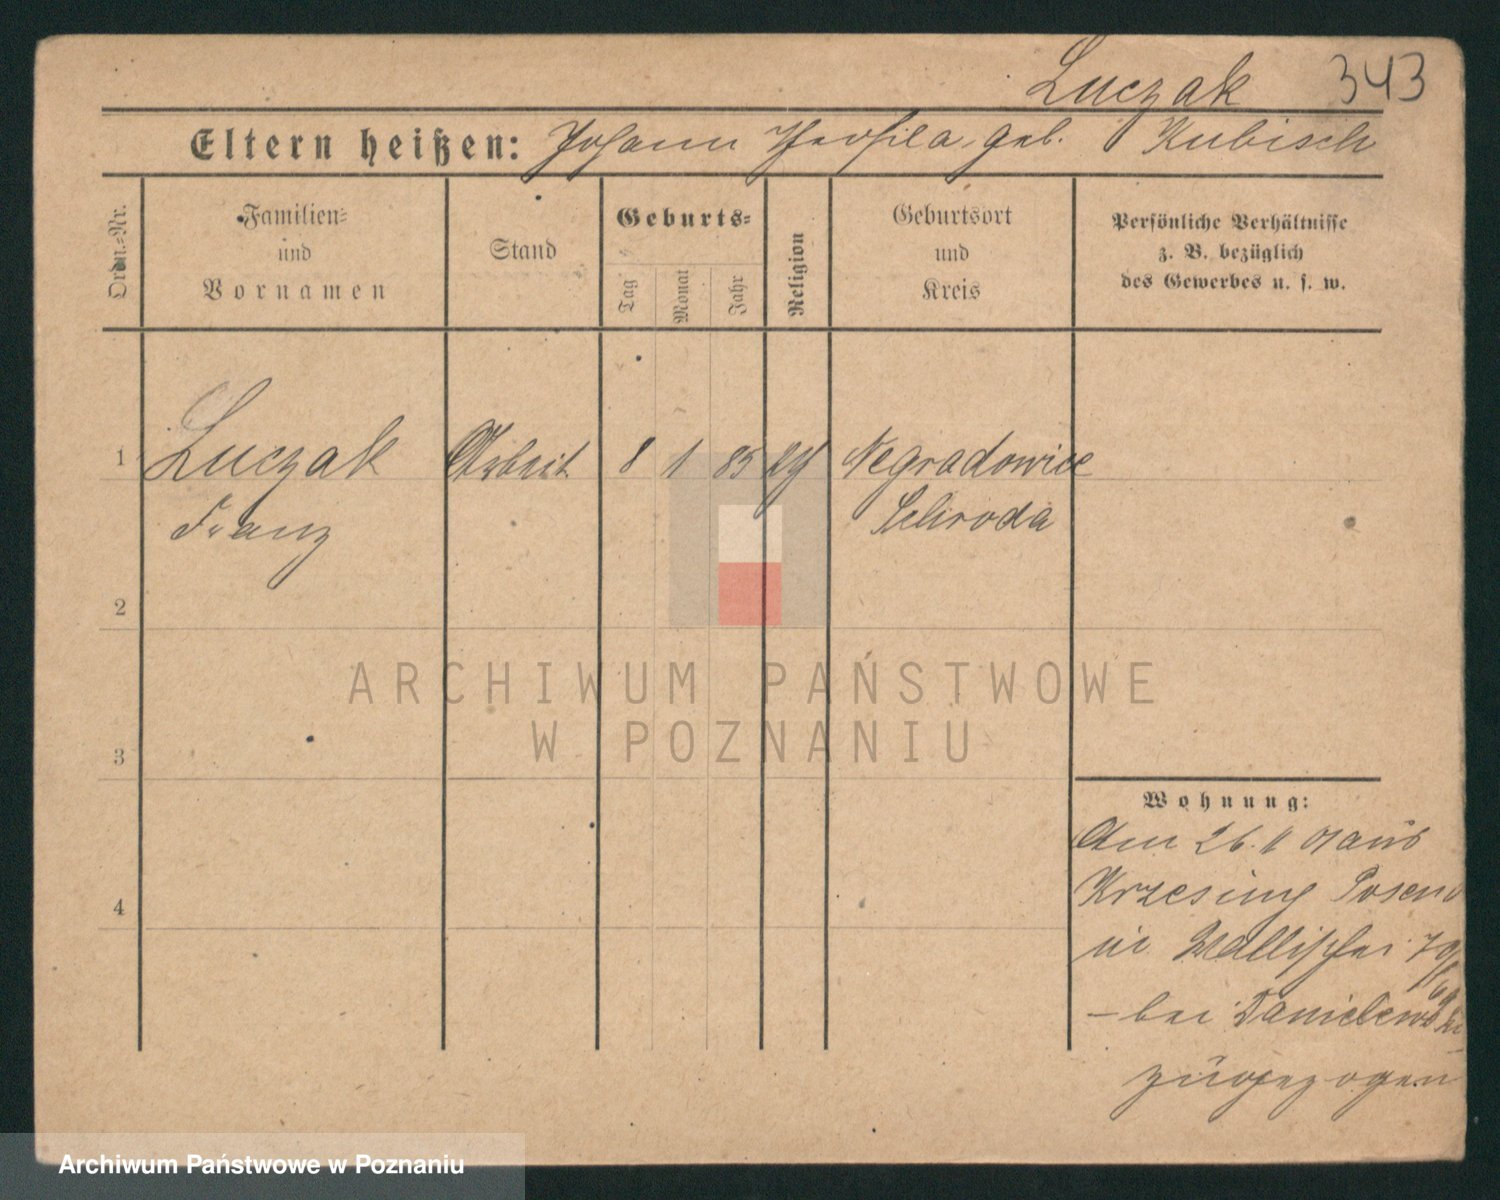 Luczak 343
Eltern heißen: Johann Theofila, geb. Kubisch
Ordn.-Nr.
Familien-
und
Vornamen
Stand
Geburts-
Tag
Monat
Jahr
Religion
Geburtsort
und
Kreis
Persönliche Verhältnisse
z. B. bezüglich
des Gewerbes u. s. w.
1 Luczak Arbeit. 8 1 85 Negradowice
Franz Schroda
2
3
4
Wohnung:
Am 26. 01 aus
Krzesiny Posen O
in Wallischei
– bei Danielewski
zugezogen
ARCHIWUM PAŃSTWOWE
W POZNANIU
Archiwum Państwowe w Poznaniu